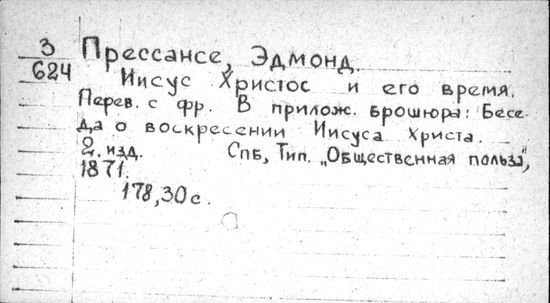 З
624
Прессансе, Эдмонд.
Иисус Христос и его время.
Перев. с фр. В прилож. брошюра: Бесе-
да о воскресении Иисуса Христа.
2. изд. Спб, Тип. "Общественная польза",
1871.
178,30 с.